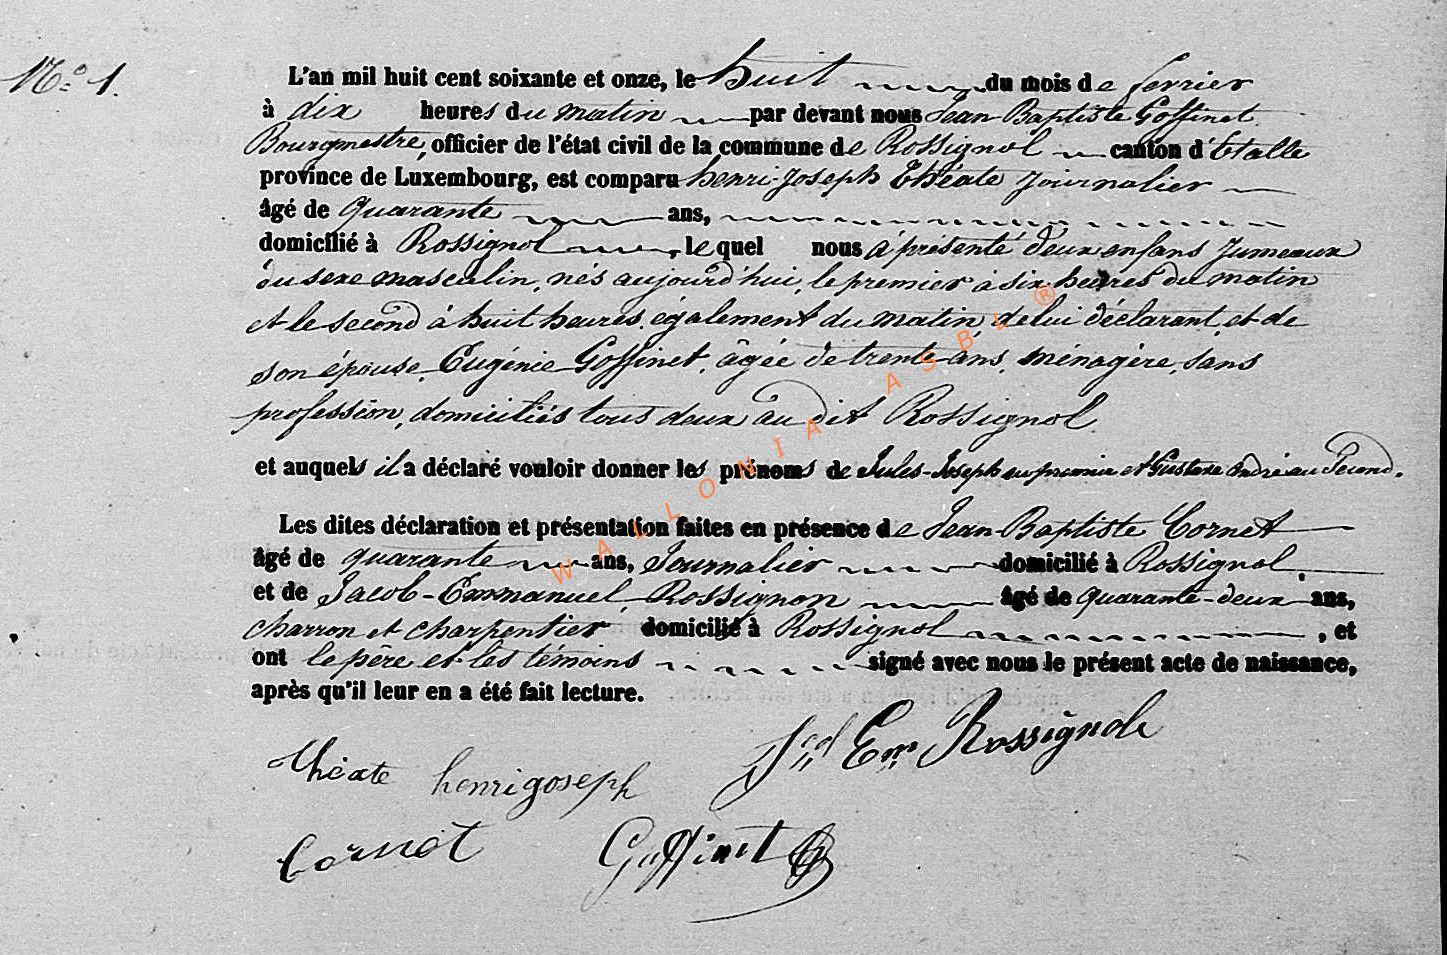 N° 1.
L'an mil huit cent soixante et onze, le huit du mois de fevrier
à dix heures du matin par devant nous Jean Baptiste Goffinet
Bourgmestre, officier de l'état civil de la commune de Rossignol canton d'Etalle
province de Luxembourg, est comparu henri-Joseph Théate Journalier
âgé de quarante ans,
domicilié à Rossignol, lequel nous a présenté deux enfans Jumeaux
du sexe masculin, nés aujourd'hui, le premier à six heures du matin
et le second à huit heures, également du matin, de lui déclarant, et de
son épouse, Eugénie Goffinet, âgée de trente ans, ménagère, sans
profession, domiciliés tous deux au dit Rossignol
et auquels il a déclaré vouloir donner les prénoms de Jules-Joseph au premier et Gustave André au Second.
Les dites déclaration et présentation faites en présence de Jean-Baptiste Cornet
âgé de quarante ans, Journalier domicilié à Rossignol,
et de Jacob-Emmanuel Rossignon âgé de quarante-deux ans,
charron et charpentier domicilié à Rossignol, et
ont le père et les témoins signé avec nous le présent acte de naissance,
après qu'il leur en a été fait lecture.
Théate henri joseph Em Rossignole
Cornet Goffinet
WALLONIA ASBL ®